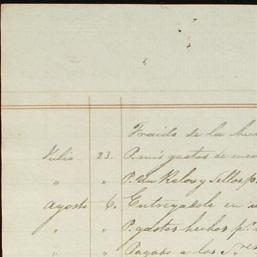 Traido de la
Julio 23. P. mis gastos de
" " P. un Relox y Sellos p.
Agosto 6. Entregadole en
" " P. gastos hechos p.r
" " Pagado a los S.res